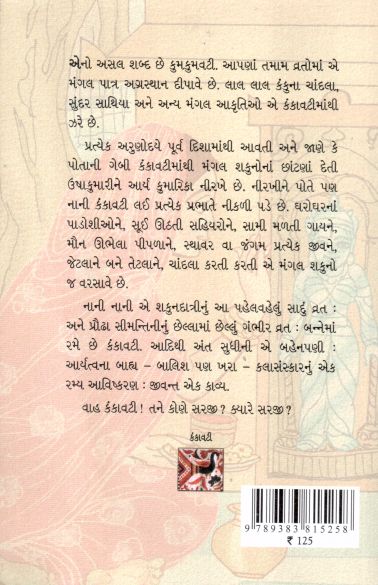 એનો અસલ શબ્દ છે કુમકુમવટી. આપણાં તમામ વ્રતોમાં એ
મંગલ પાત્ર અગ્રસ્થાન દીપાવે છે. લાલ લાલ કંકુના ચાંદલા,
સુંદર સાથિયા અને અન્ય મંગલ આકૃતિઓ એ કંકાવટીમાંથી
ઝરે છે.
પ્રત્યેક અરુણોદયે પૂર્વ દિશામાંથી આવતી અને જાણે કે
પોતાની ગેબી કંકાવટીમાંથી મંગલ શકુનોનાં છાંટણાં દેતી
ઉષાકુમારીને આર્ય કુમારિકા નીરખે છે. નીરખીને પોતે પણ
નાની કંકાવટી લઈ પ્રત્યેક પ્રભાતે નીકળી પડે છે. ઘરોઘરનાં
પાડોશીઓને, સૂઈ ઊઠતી સહિયરોને, સામી મળતી ગાયને,
મૌન ઊભેલા પીપળાને, સ્થાવર વા જંગમ પ્રત્યેક જીવને,
જેટલાને બને તેટલાને, ચાંદલા કરતી કરતી એ મંગલ શકુનો
જ વરસાવે છે.
નાની નાની એ શકુનદાત્રીનું આ પહેલવહેલું સાદું વ્રત :
અને પ્રૌઢા સીમંતિનીનું છેલ્લામાં છેલ્લું ગંભીર વ્રત : બન્નેમાં
રમે છે કંકાવટી. આદિથી અંત સુધીની એ બહેનપણી :
આર્યત્વના બાહ્ય – બાલિશ પણ ખરા – કલાસંસ્કારનું એક
રમ્ય આવિષ્કરણ : જીવન્ત એક કાવ્ય.
વાહ કંકાવટી ! તને કોણે સરજી ? ક્યારે સરજી ?
કંકાવટી
9 789383 815258
₹ 125